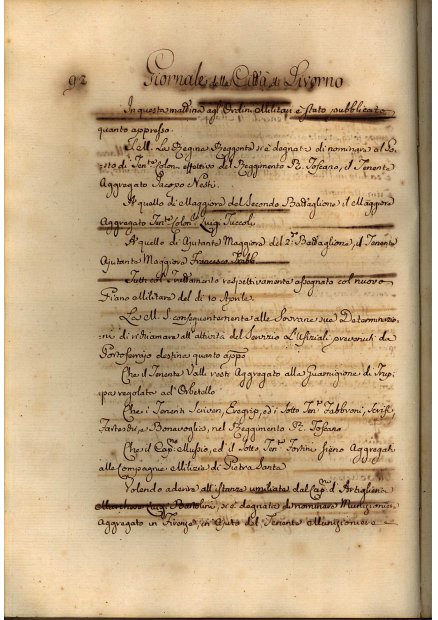 92 Giornale della Città di Livorno
In questa mattina agl'Ordini Militari è stato pubblicato
quanto appresso
S. M. La Regina Reggente si è degnata di nominare al Po-
sto di Ten.te Colon. effettivo del Reggimento R. Toscano, il Tenente
Aggregato Jacopo Nesti.
A quello di Maggiore del Secondo Battaglione il Maggiore
Aggregato Ten.te Colon. Luigi Tuccoli
A quello di Ajutante Maggiore del 2.o Battaglione, il Tenente
Ajutante Maggiore Francesco
Tutti col Trattamento respettivamente assegnato col nuovo
Piano Militare del dì 10 Aprile.
La M. S. conseguentemente alle Sovrane sue Determinazio-
ni di richiamare all'attività del Servizio L'Ufiziali prevenuti da
Portoferrajo destina quanto app.o
Che il Tenente Valli resti Aggregato alla Guarnigione di Trup-
pa regolata ad Orbetello
Che i Tenenti ed i Sotto Ten.ti Fabbroni,
e Bonavoglia, nel Reggimento R. Toscano
Che il Cap.no Mussio, ed il Sotto Ten.te Fortini sieno Aggregati
alle Compagnie Milizie di Pietra Santa
Volendo aderire all'istanze umiliate dal Cap.no d'Artiglieria
Marchese Luigi Bartolini, si è degnata di nominare Munizioniere
Aggregato in Firenze, in Ajuto del Tenente Munizioniere